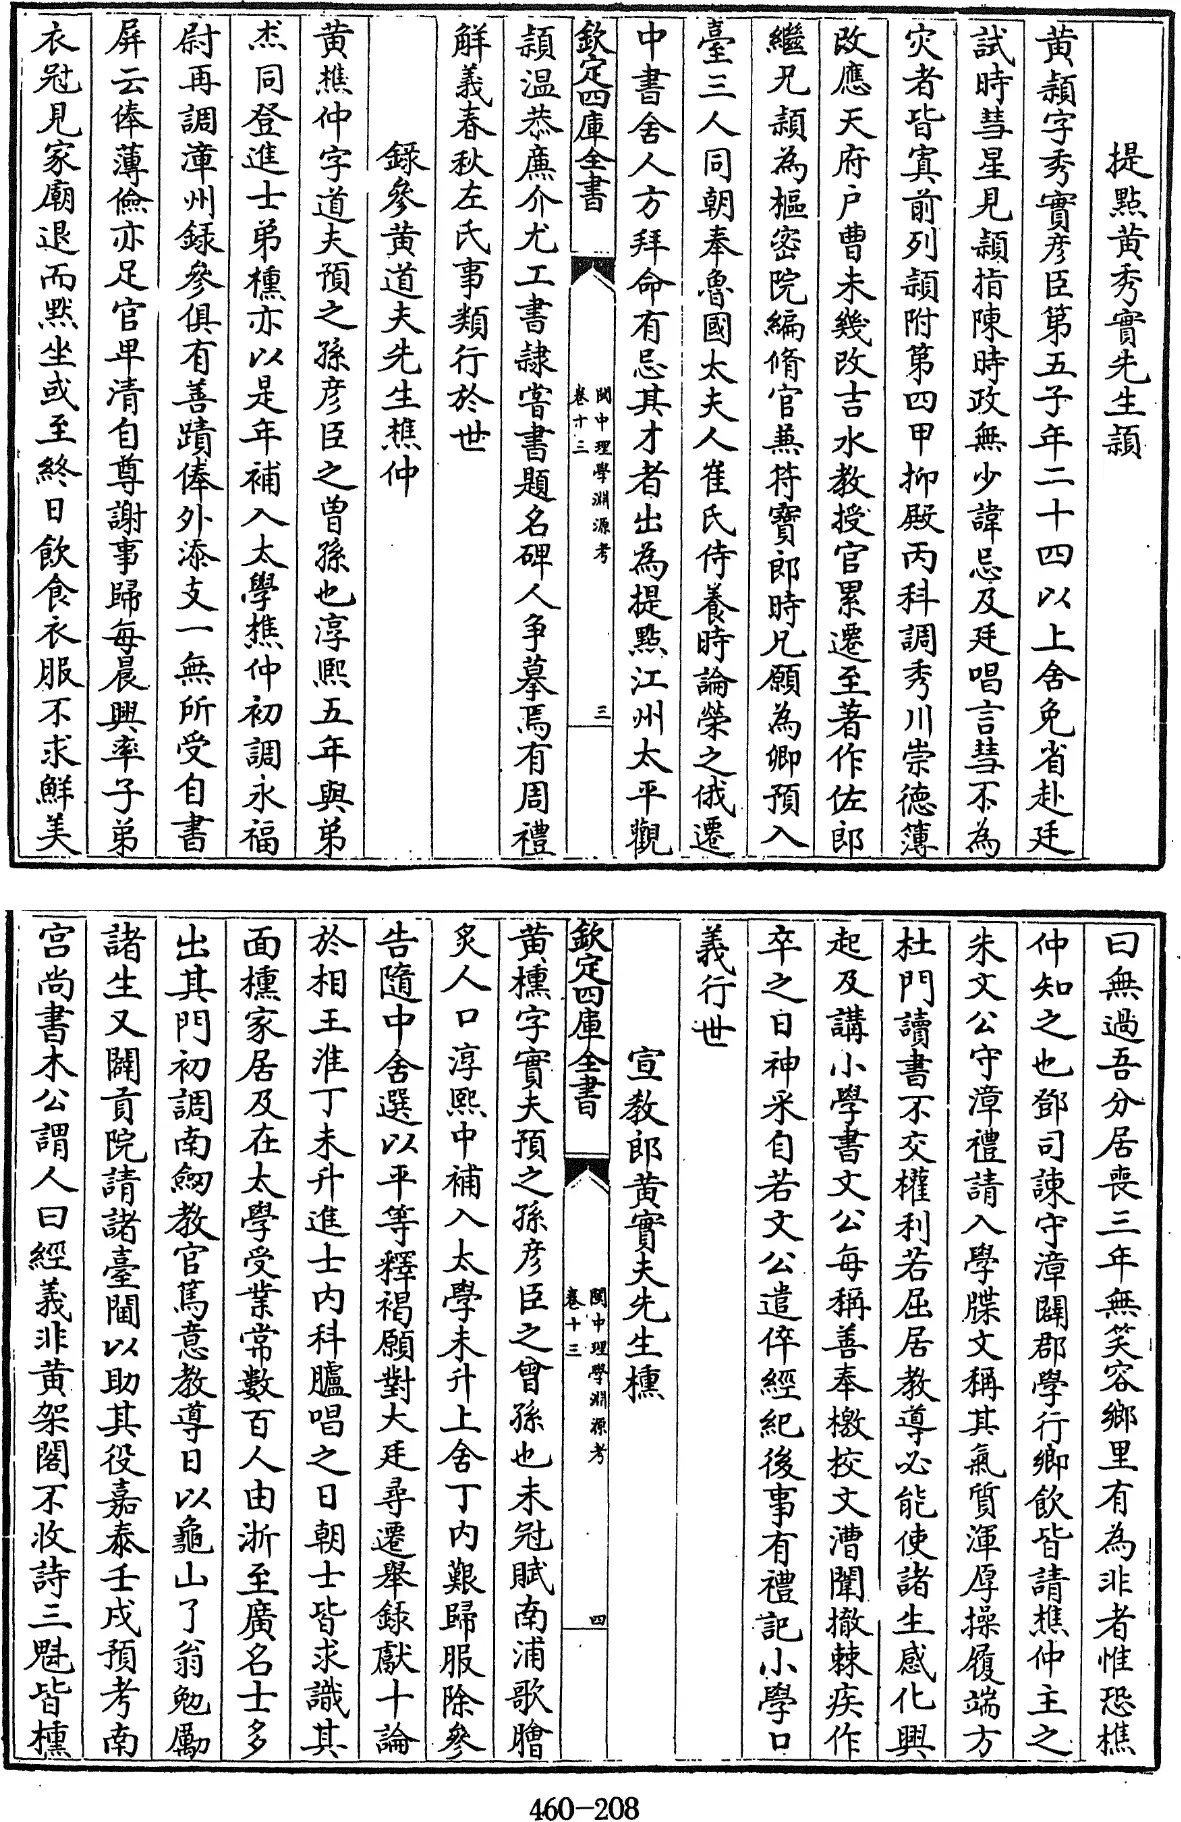 提點黄秀實先生頴
黄頴字秀實彦臣第五子年二十四以上舍免省赴廷
試時彗星見頴指陳時政無少諱忌及廷唱言彗不為
灾者皆寘前列頴附第四甲抑殿丙科調秀川崇德簿
改應天府户曹未幾改吉水教授官累遷至著作佐郎
繼兄頴為樞密院編脩官兼符寳郎時兄願為卿預入
臺三人同朝奉魯國太夫人崔氏侍養時論榮之俄遷
中書舍人方拜命有忌其才者出為提點江州太平觀
欽定四庫全書
閩中理學淵源考
卷十三
三
頴温恭廉介尤工書隷嘗書題名碑人争摹焉有周禮
解義春秋左氏事類行於世
錄參黄道夫先生樵仲
黄樵仲字道夫預之孫彦臣之曾孫也淳熙五年與弟
杰同登進士弟櫄亦以是年補入太學樵仲初調永福
尉再調漳州録參俱有善蹟俸外添支一無所受自書
屏云俸薄儉亦足官卑清自尊謝事歸每晨興率子弟
衣冠見家廟退而默坐或至終日飲食衣服不求鮮美
曰無過吾分居喪三年無笑容鄉里有為非者惟恐樵
仲知之也鄧司諫守漳闢郡學行鄉飲皆請樵仲主之
朱文公守漳禮請入學牒文稱其氣質渾厚操履端方
杜門讀書不交權利若屈居教導必能使諸生感化興
起及講小學書文公每稱善奉檄校文漕闈撤棘疾作
卒之日神采自若文公遣倅經紀後事有禮記小學口
義行世
宣教郎黄實夫先生櫄
欽定四庫全書
閩中理學淵源考
卷十三
四
黄櫄字實夫預之孫彦臣之曾孫也未冠賦南浦歌膾
炙人口淳熙中補入太學未升上舍丁内艱歸服除參
告隨中舍選以平等釋褐願對大廷尋遷舉録獻十論
於相王淮丁未升進士内科臚唱之日朝士皆求識其
面櫄家居及在太學受業常數百人由浙至廣名士多
出其門初調南劒教官篤意教導日以龜山了翁勉勵
諸生又闢貢院請諸臺閫以助其役嘉泰壬戌預考南
宫尚書木公謂人曰經義非黄架閣不收詩三魁皆櫄
460-208